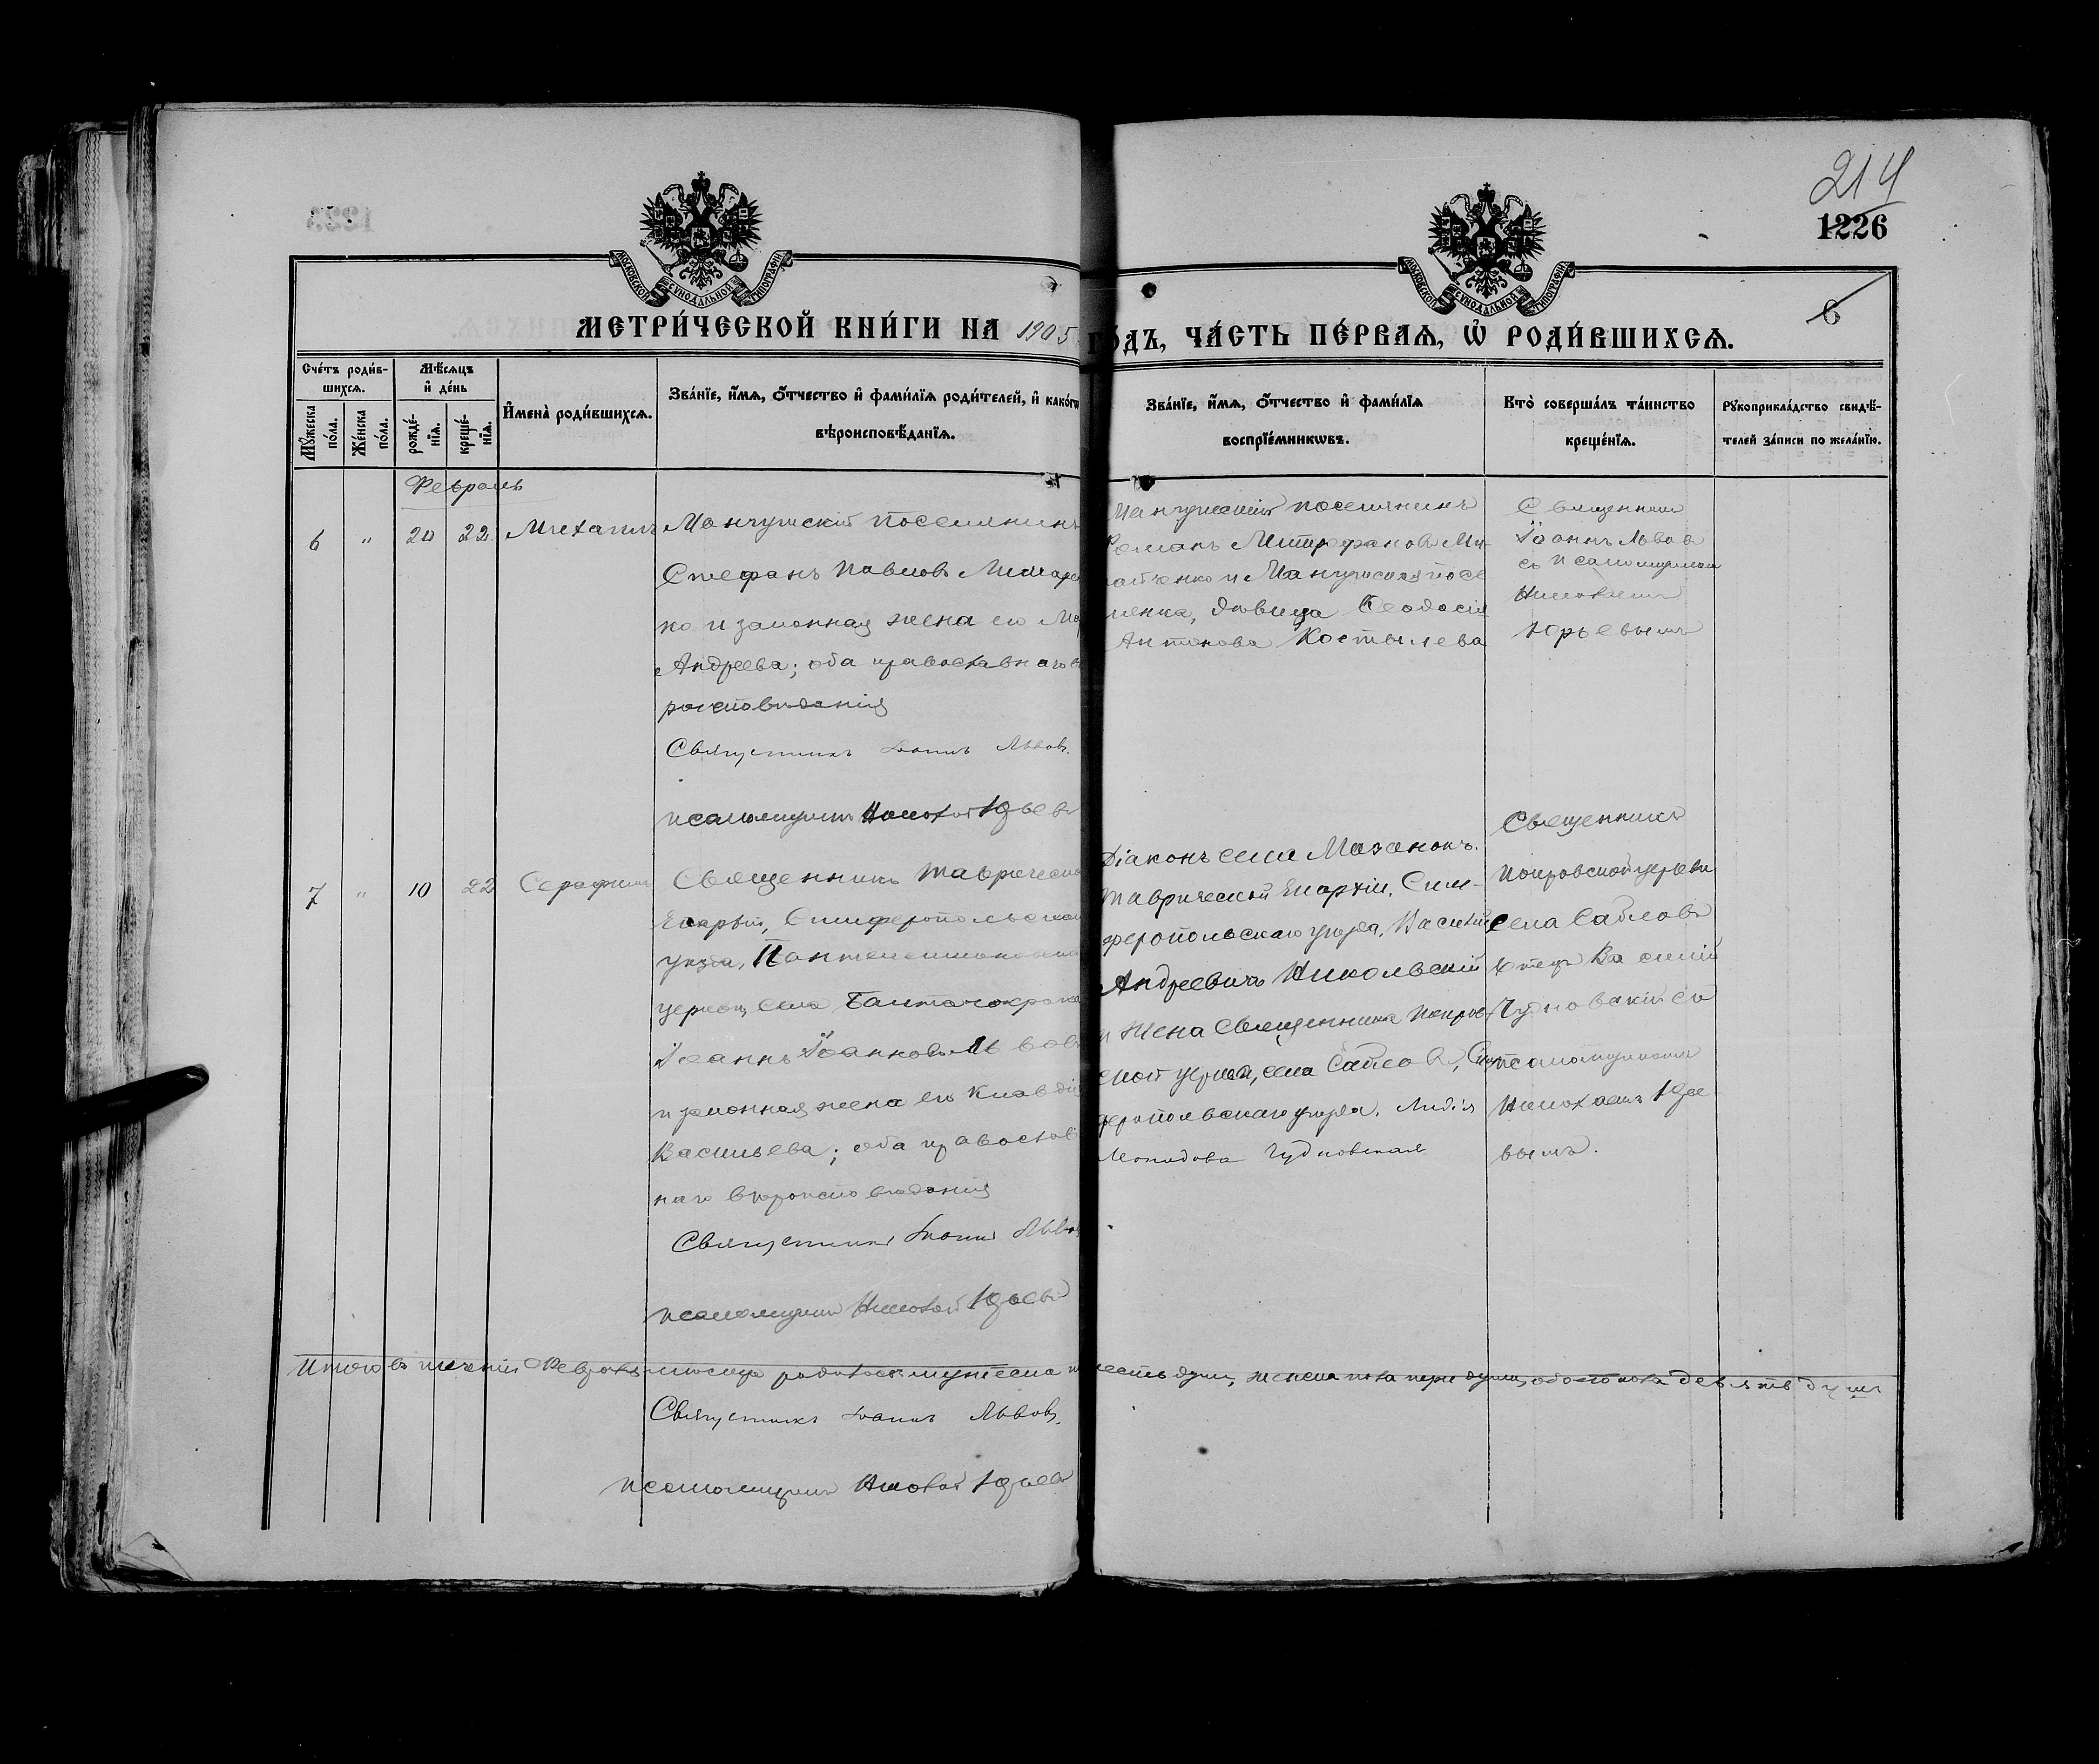 214
1226
6
МОСКОВСКОЙ СѴНОДАЛЬНОЙ ТИПОГРАФІИ
МОСКОВСКОЙ СѴНОДАЛЬНОЙ ТИПОГРАФІИ
МЕТРИ́ЧЕСКОЙ КНИ́ГИ НА 1905
ГО́ДЪ, ЧА́СТЬ ПЕ́РВАѦ, Ѽ РОДИ́ВШИХСѦ.
Сче́тъ роди́в-
шихсѧ.
Мꙋ́жеска по́ла.
Же́нска по́ла.
Мѣ́сѧцъ и҆ де́нь
рожде́-нїѧ.
креще́-нїѧ.
И҆мена̀ роди́вшихсѧ.
Зва́нїе, и҆́мѧ, ѻ҆́тчество и҆ фами́лїѧ роди́телей, и҆ како́гѡ
вѣроисповѣ́данїѧ.
Зва́нїе, и҆́мѧ, ѻ҆́тчество и҆ фами́лїѧ
воспрїе́мникѡвъ.
Кто̀ соверша́лъ та́инство
креще́нїѧ.
Рꙋкоприкла́дство свидѣ́-
телей за́писи по жела́нїю.
Февраль
6 " 20 22 Михаилъ
Мангушскій поселянинъ
Стефанъ Павловъ
но и законная жена его
Андреева; оба православнаго вѣ
роисповѣданія
Священникъ Іоаннъ Львовъ.
псаломщикъ Юрьевъ
Мангушскій поселянинъ
Романъ Митрофановъ Ми-
и Мангушская посе
лянка, дѣвица Ѳеодосія
Антонова Костылева
Священникъ
Іоаннъ Львовъ
съ псаломщикомъ
Николаемъ
Юрьевымъ
7 " 10 22 Серафимъ
Священникъ Таврической
Епархіи, Симферопольскаго
уѣзда, Пантелеимоновской
церкви, села
Іоаннъ Іоанновъ Львовъ
и законная жена его Клавдія
Васильева; оба православ
наго вѣроисповѣданія
Священникъ Іоаннъ Львовъ
псаломщикъ Юрьевъ
Діаконъ села Мазанокъ.
Таврической Епархіи, Сим-
феропольскаго уѣзда, Василій
Андреевичъ Никольскій
и жена Священника Покров
ской церкви, села Саблов, Сим
феропольскаго уѣзда, Лидія
Чудновская
Священникъ
Покровской церкви
села Сабловъ
Отецъ Василій
Чудновскій съ
псаломщикомъ
Николаемъ Юрье
вымъ.
Итого въ теченіи Февраля мѣсяца родилось: мужеска пола шесть душъ, женска пола три души, обоего пола девять душъ
Священникъ Іоаннъ Львовъ.
псаломщикъ Юрьевъ